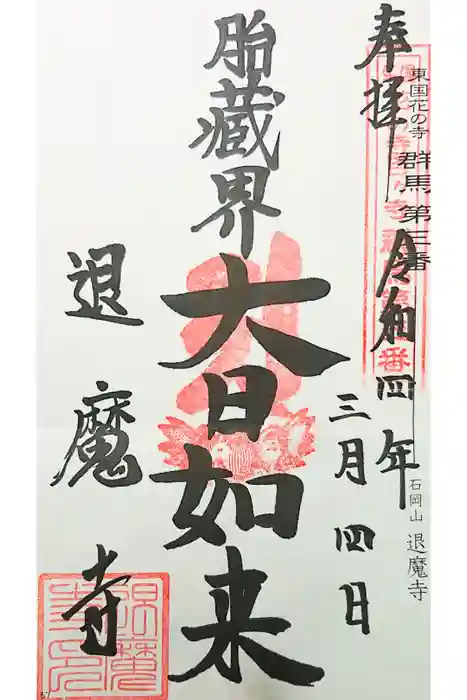 奉拝
東国花の寺
群馬第三番
令和四年
三月四日
石岡山 退魔寺
胎蔵界
大日如来
退魔寺